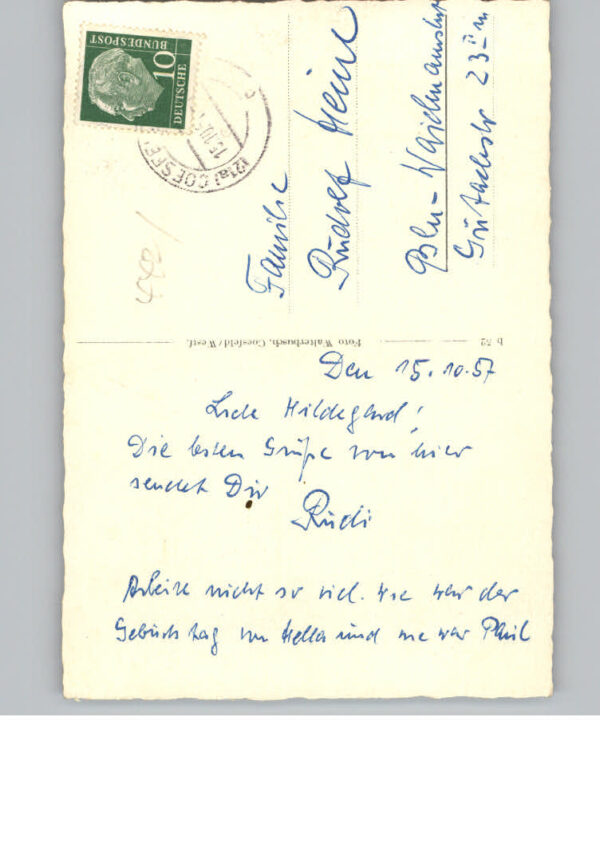 DEUTSCHE
BUNDESPOST
10
(21a) COESFE
Familie
Rudolf Heine
Bln-Waidmannslust
23
b 52
Foto Walterbusch, Coesfeld/Westf.
Den 15.10.57
Liebe Hildegard!
Die besten Grüße von hier
sendet Dir
Rudi
Arbeite nicht so viel. Wie war der
Geburtstag von Hella und wie war